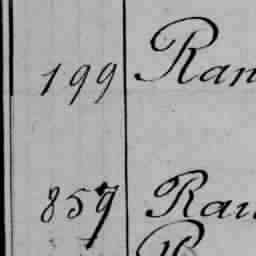 199 Ran
857 Rau